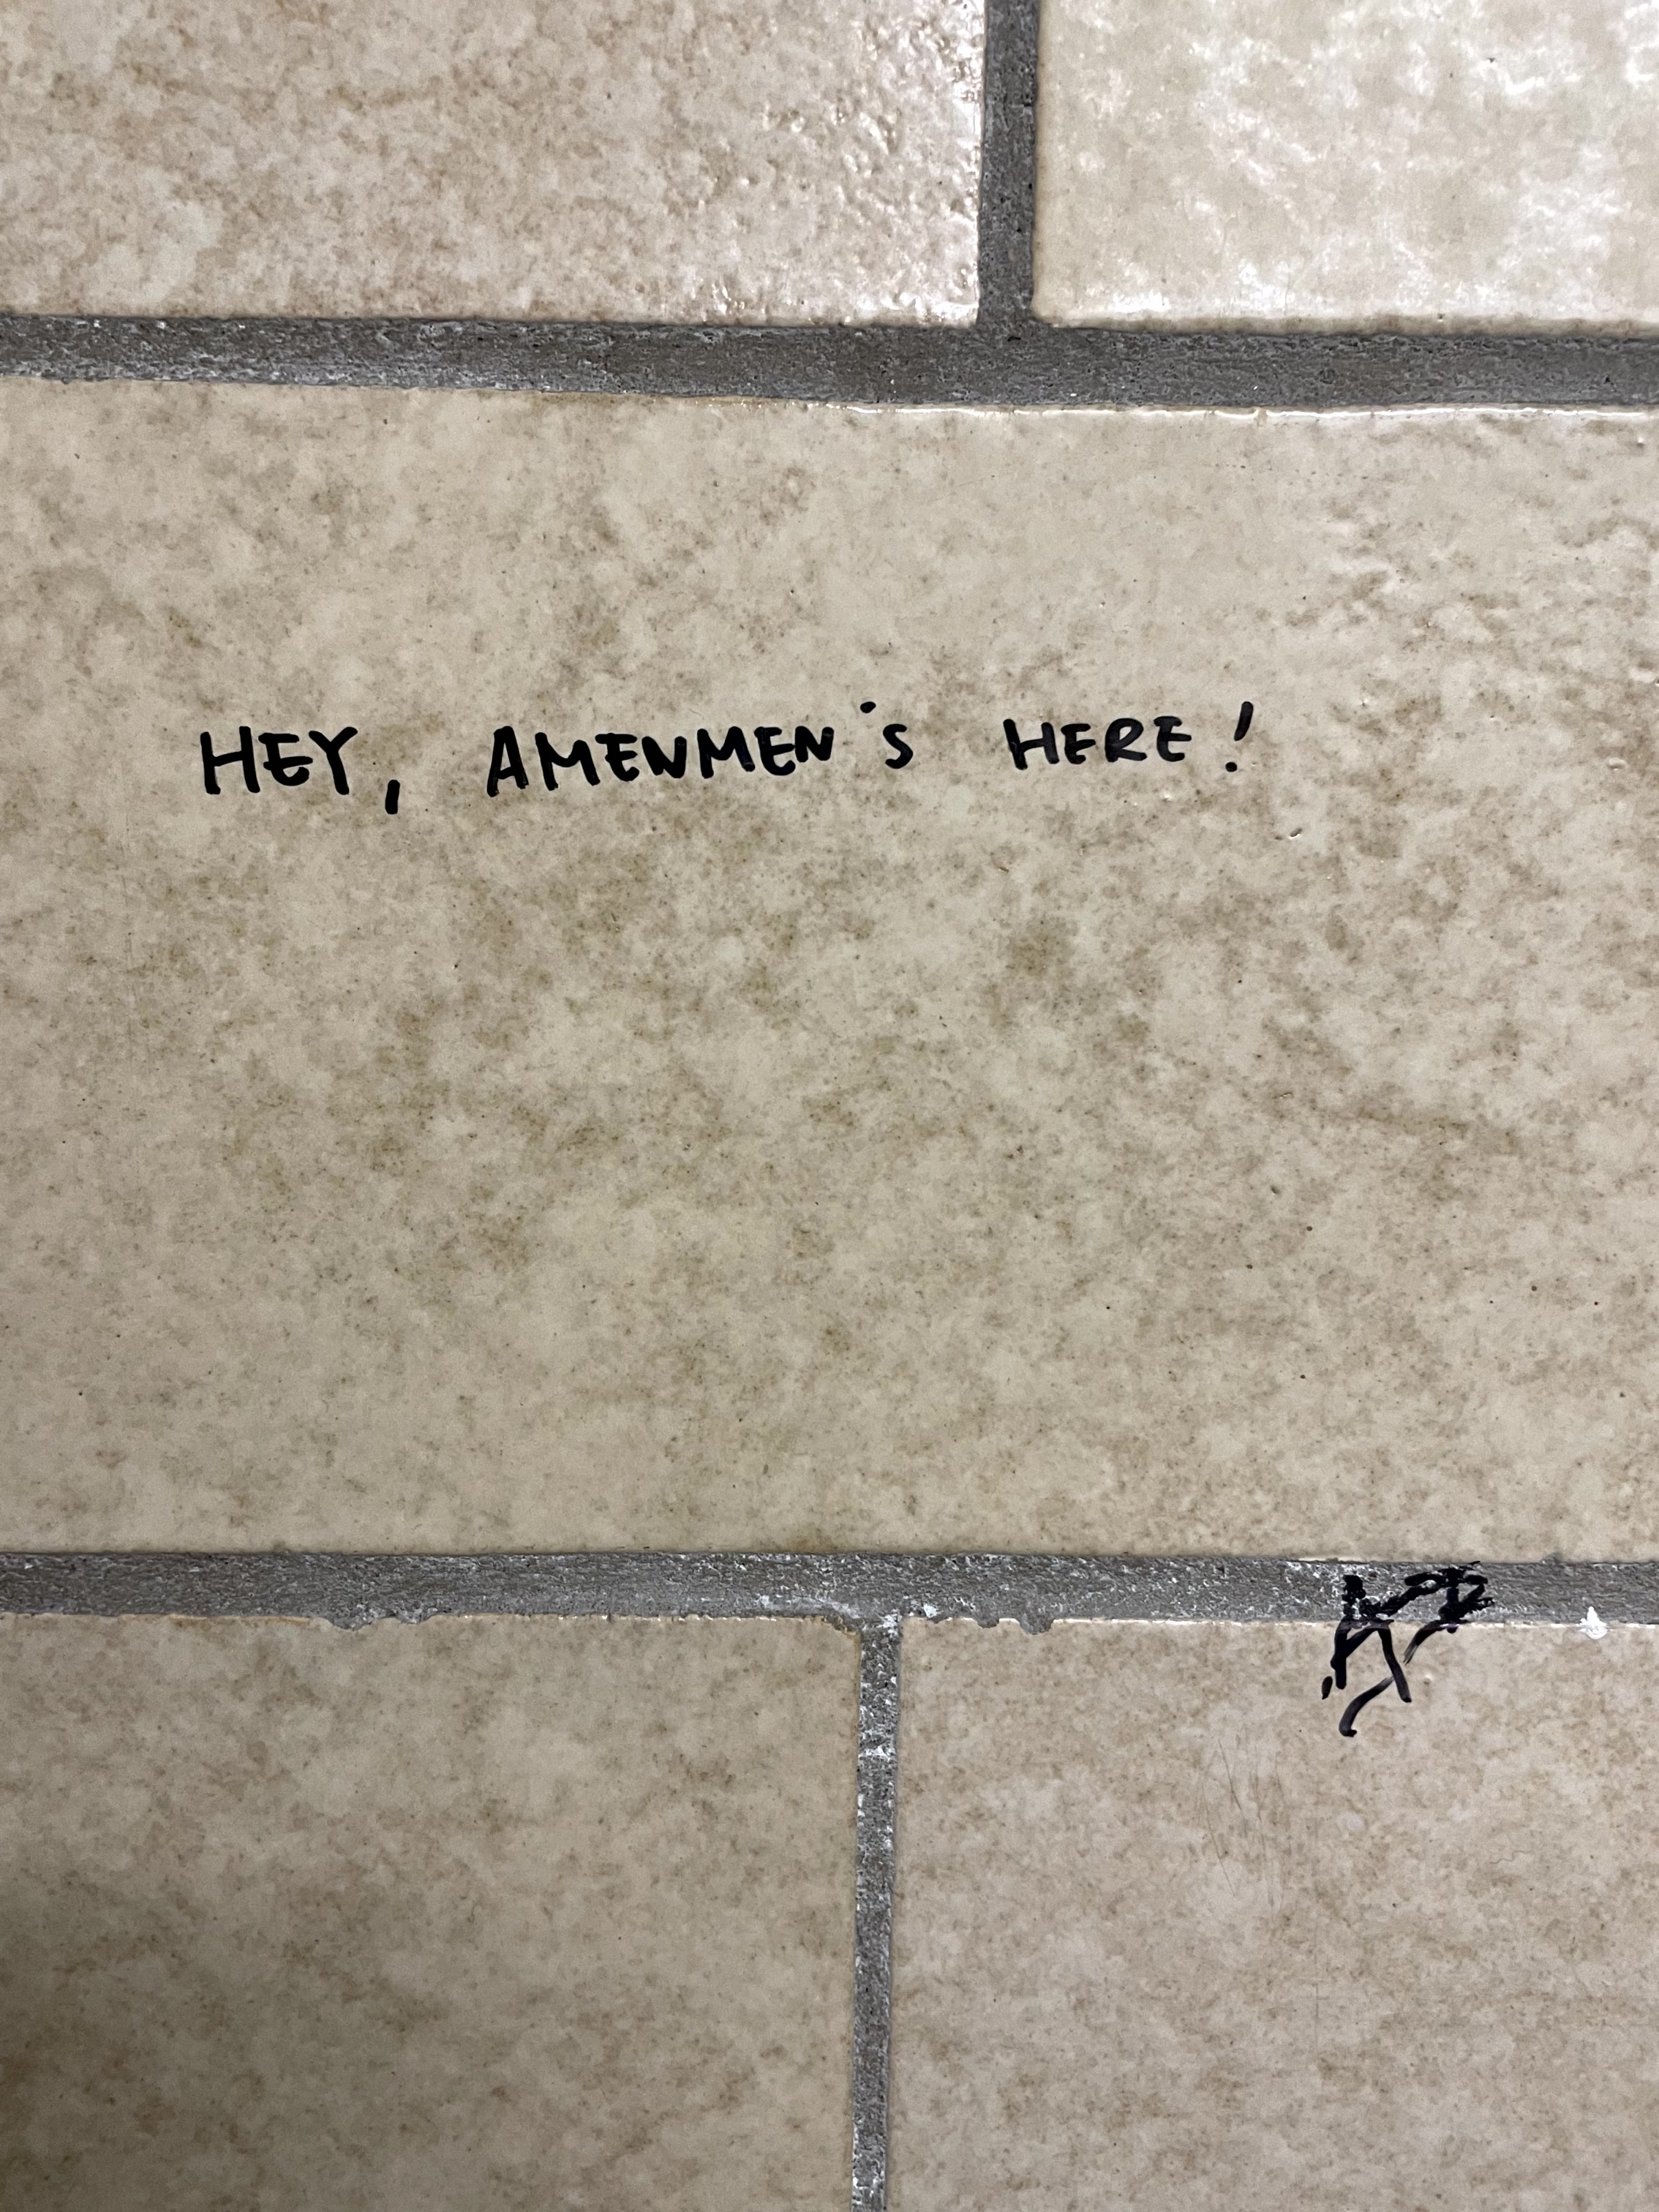 HEY, AMENMEN'S HERE!